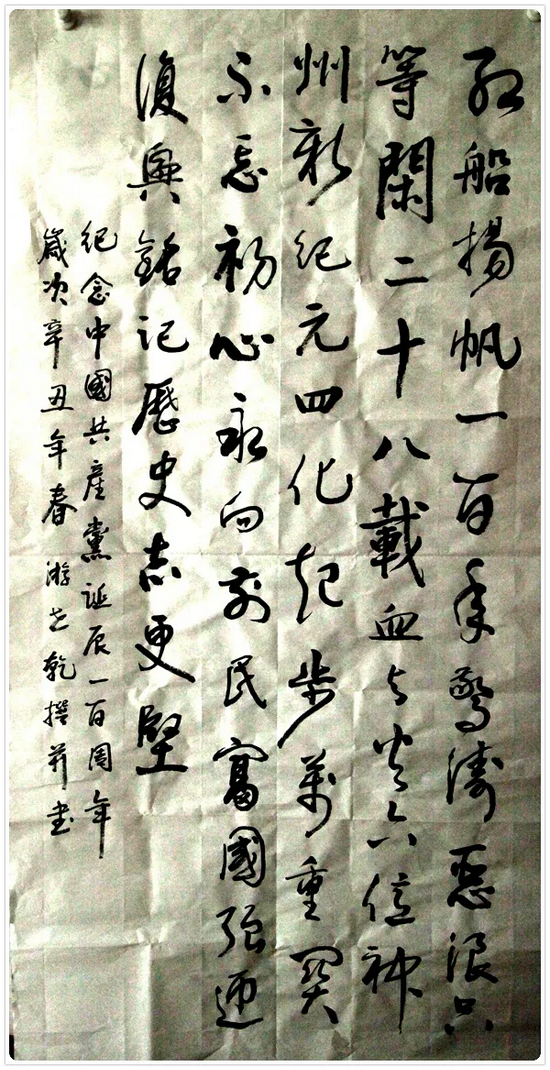 红船揚帆一百年驚濤惡浪只
等閑二十八載血与火六億神
州新紀元四化起步万重関
不忘初心永向前民富國強迎
復興銘記歷史志更堅
紀念中國共産黨誕辰一百周年
歲次辛丑年春游志乾撰并书